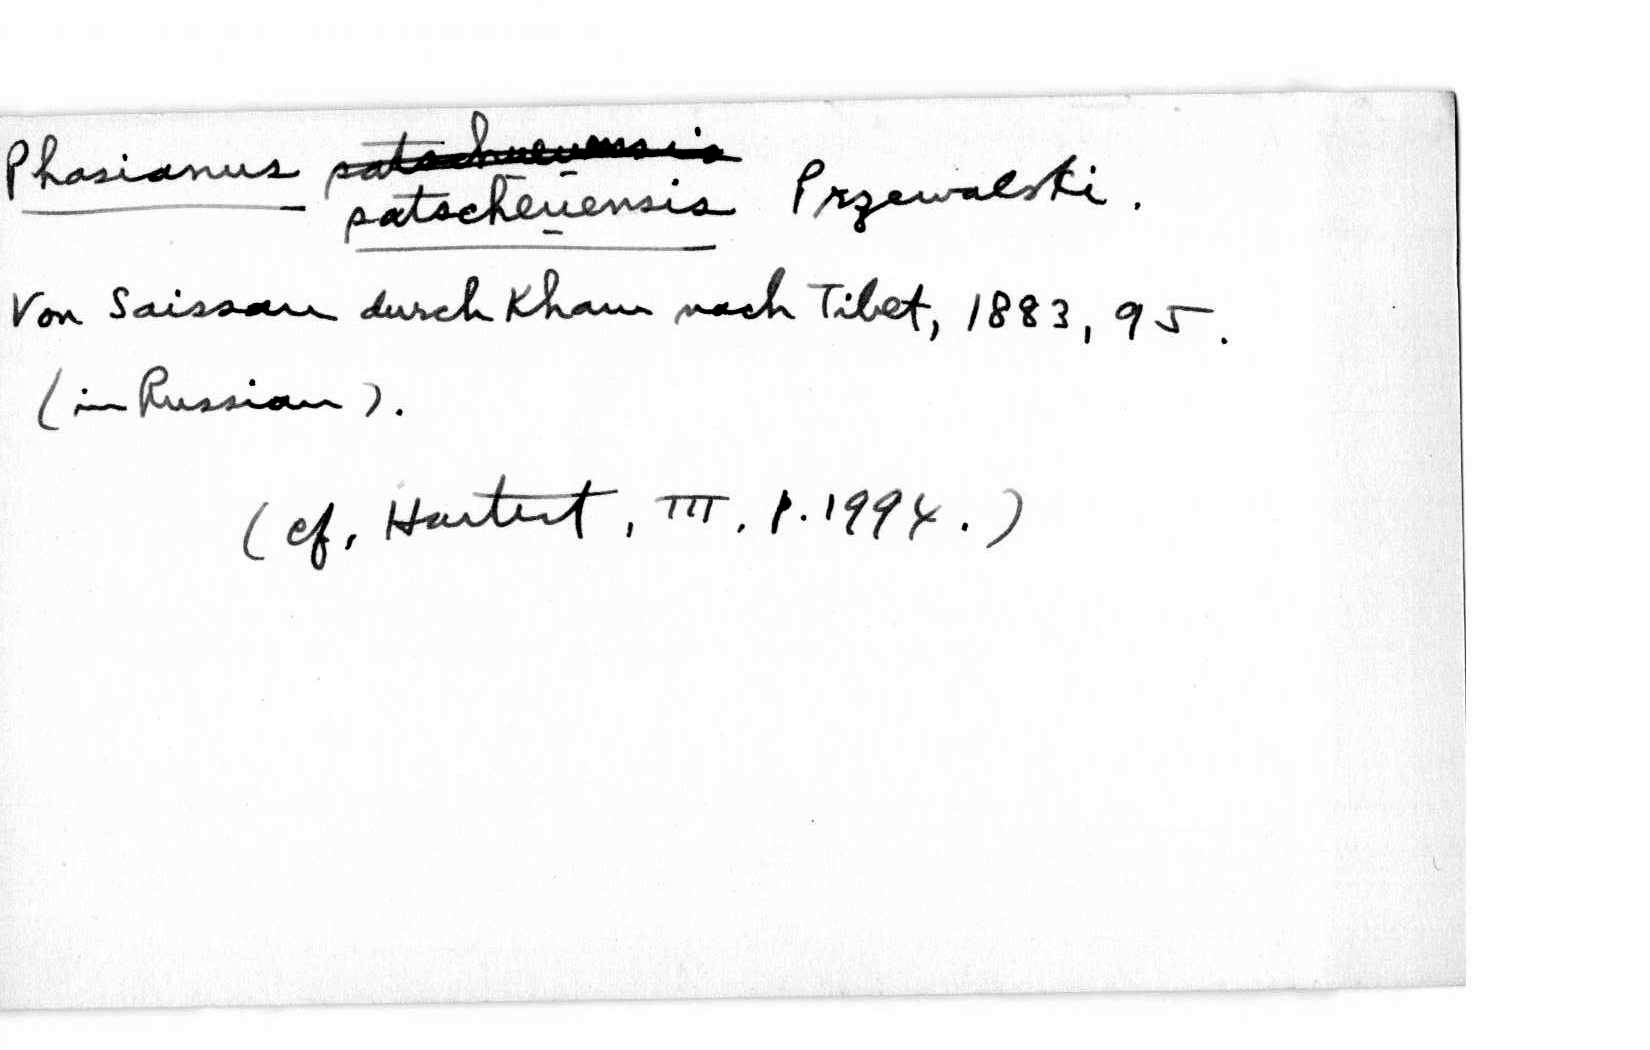 Phasianus satscheuensis Przewalski.
Von Saissan durch Kham nach Tibet, 1883, 95.
(in Russian).
(cf, Hartert, III. p. 1994.)